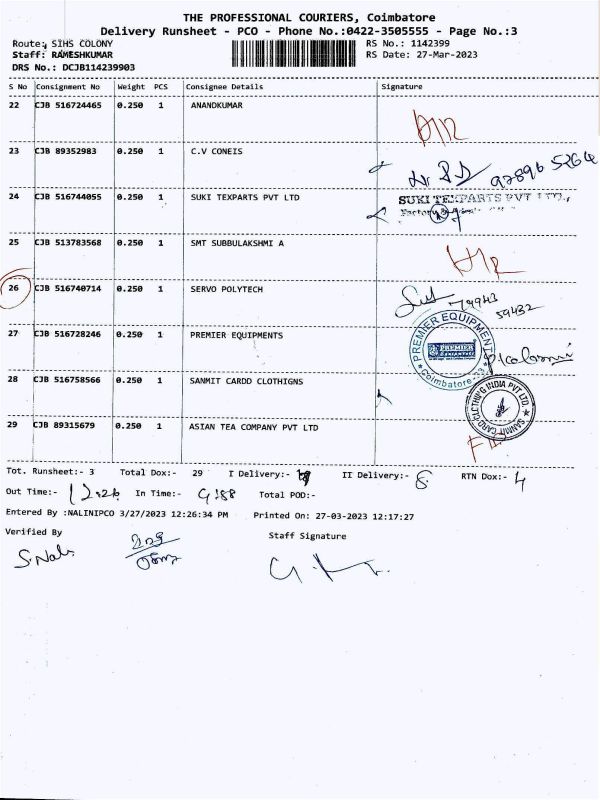 THE PROFESSIONAL COURIERS, Coimbatore
Delivery Runsheet - PCO - Phone No.:0422-3505555 - Page No.:3
Route: SIHS COLONY
RS No.: 1142399
Staff: RAMESHKUMAR
RS Date: 27-Mar-2023
DRS No.: DCJB114239903
S No Consignment No Weight PCS Consignee Details Signature
22 CJB 516724465 0.250 1 ANANDKUMAR
23 CJB 89352983 0.250 1 C.V CONEIS
92896 5264
24 CJB 516744055 0.250 1 SUKI TEXPARTS PVT LTD
SUKI TEXPARTS PVT LTD.,
Factory
25 CJB 513783568 0.250 1 SMT SUBBULAKSHMI A
26 CJB 516740714 0.250 1 SERVO POLYTECH
79943
59432
27 CJB 516728246 0.250 1 PREMIER EQUIPMENTS
PREMIER EQUIPMENT
PREMIER
Coimbatore
28 CJB 516758566 0.250 1 SANMIT CARDD CLOTHIGNS
SANMIT CARD CLOTHING INDIA PVT LTD
29 CJB 89315679 0.250 1 ASIAN TEA COMPANY PVT LTD
Tot. Runsheet:- 3 Total Dox:- 29 I Delivery:- II Delivery:- 8 RTN Dox:- 4
Out Time:- In Time:- Total POD:-
Entered By :NALINIPCO 3/27/2023 12:26:34 PM Printed On: 27-03-2023 12:17:27
Verified By
Staff Signature
S.Nali